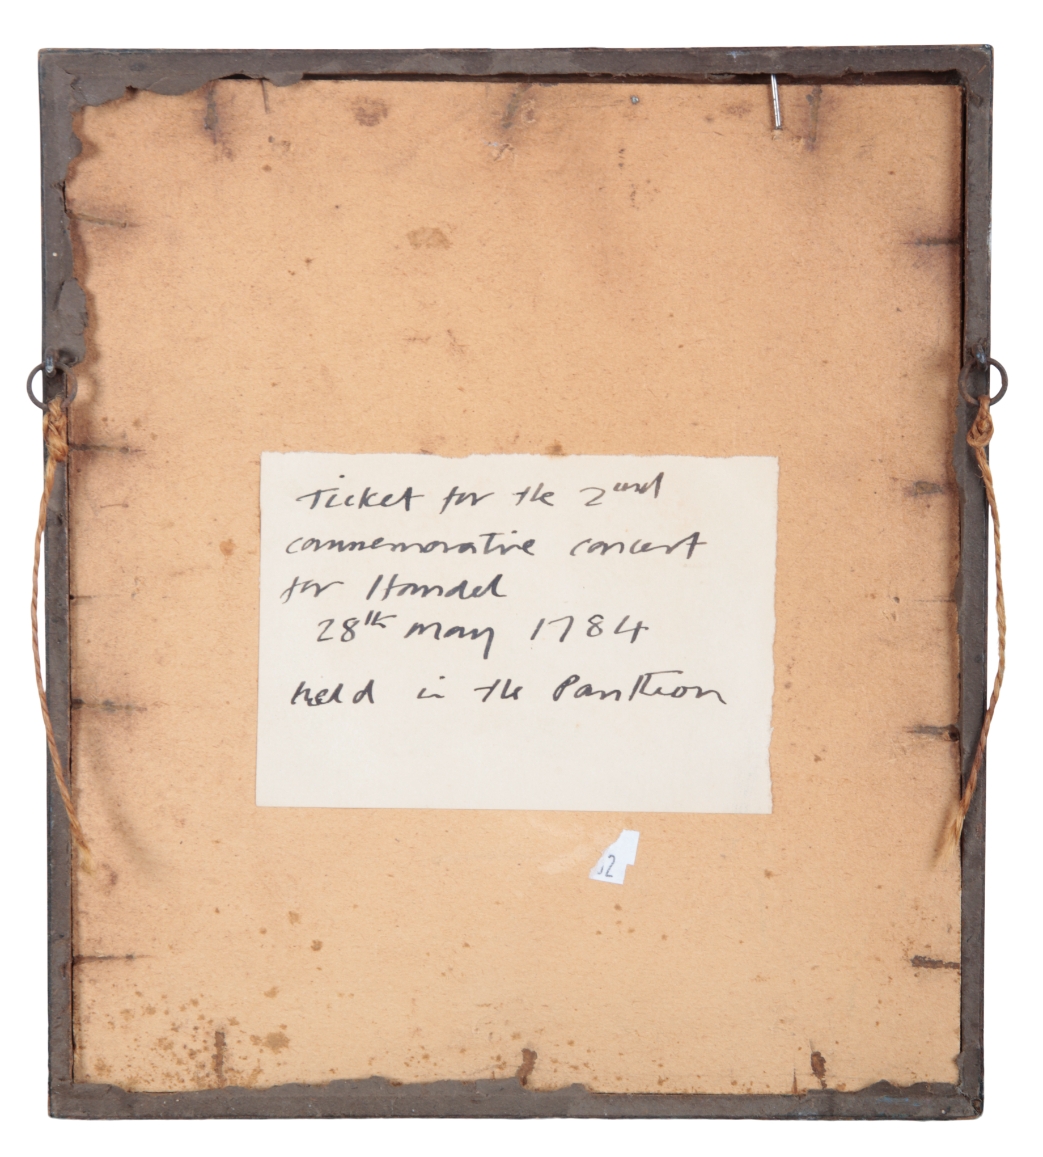 Ticket for the 2und
commemorative concert
for Handel
28th May 1784
held in the Pantheon
2